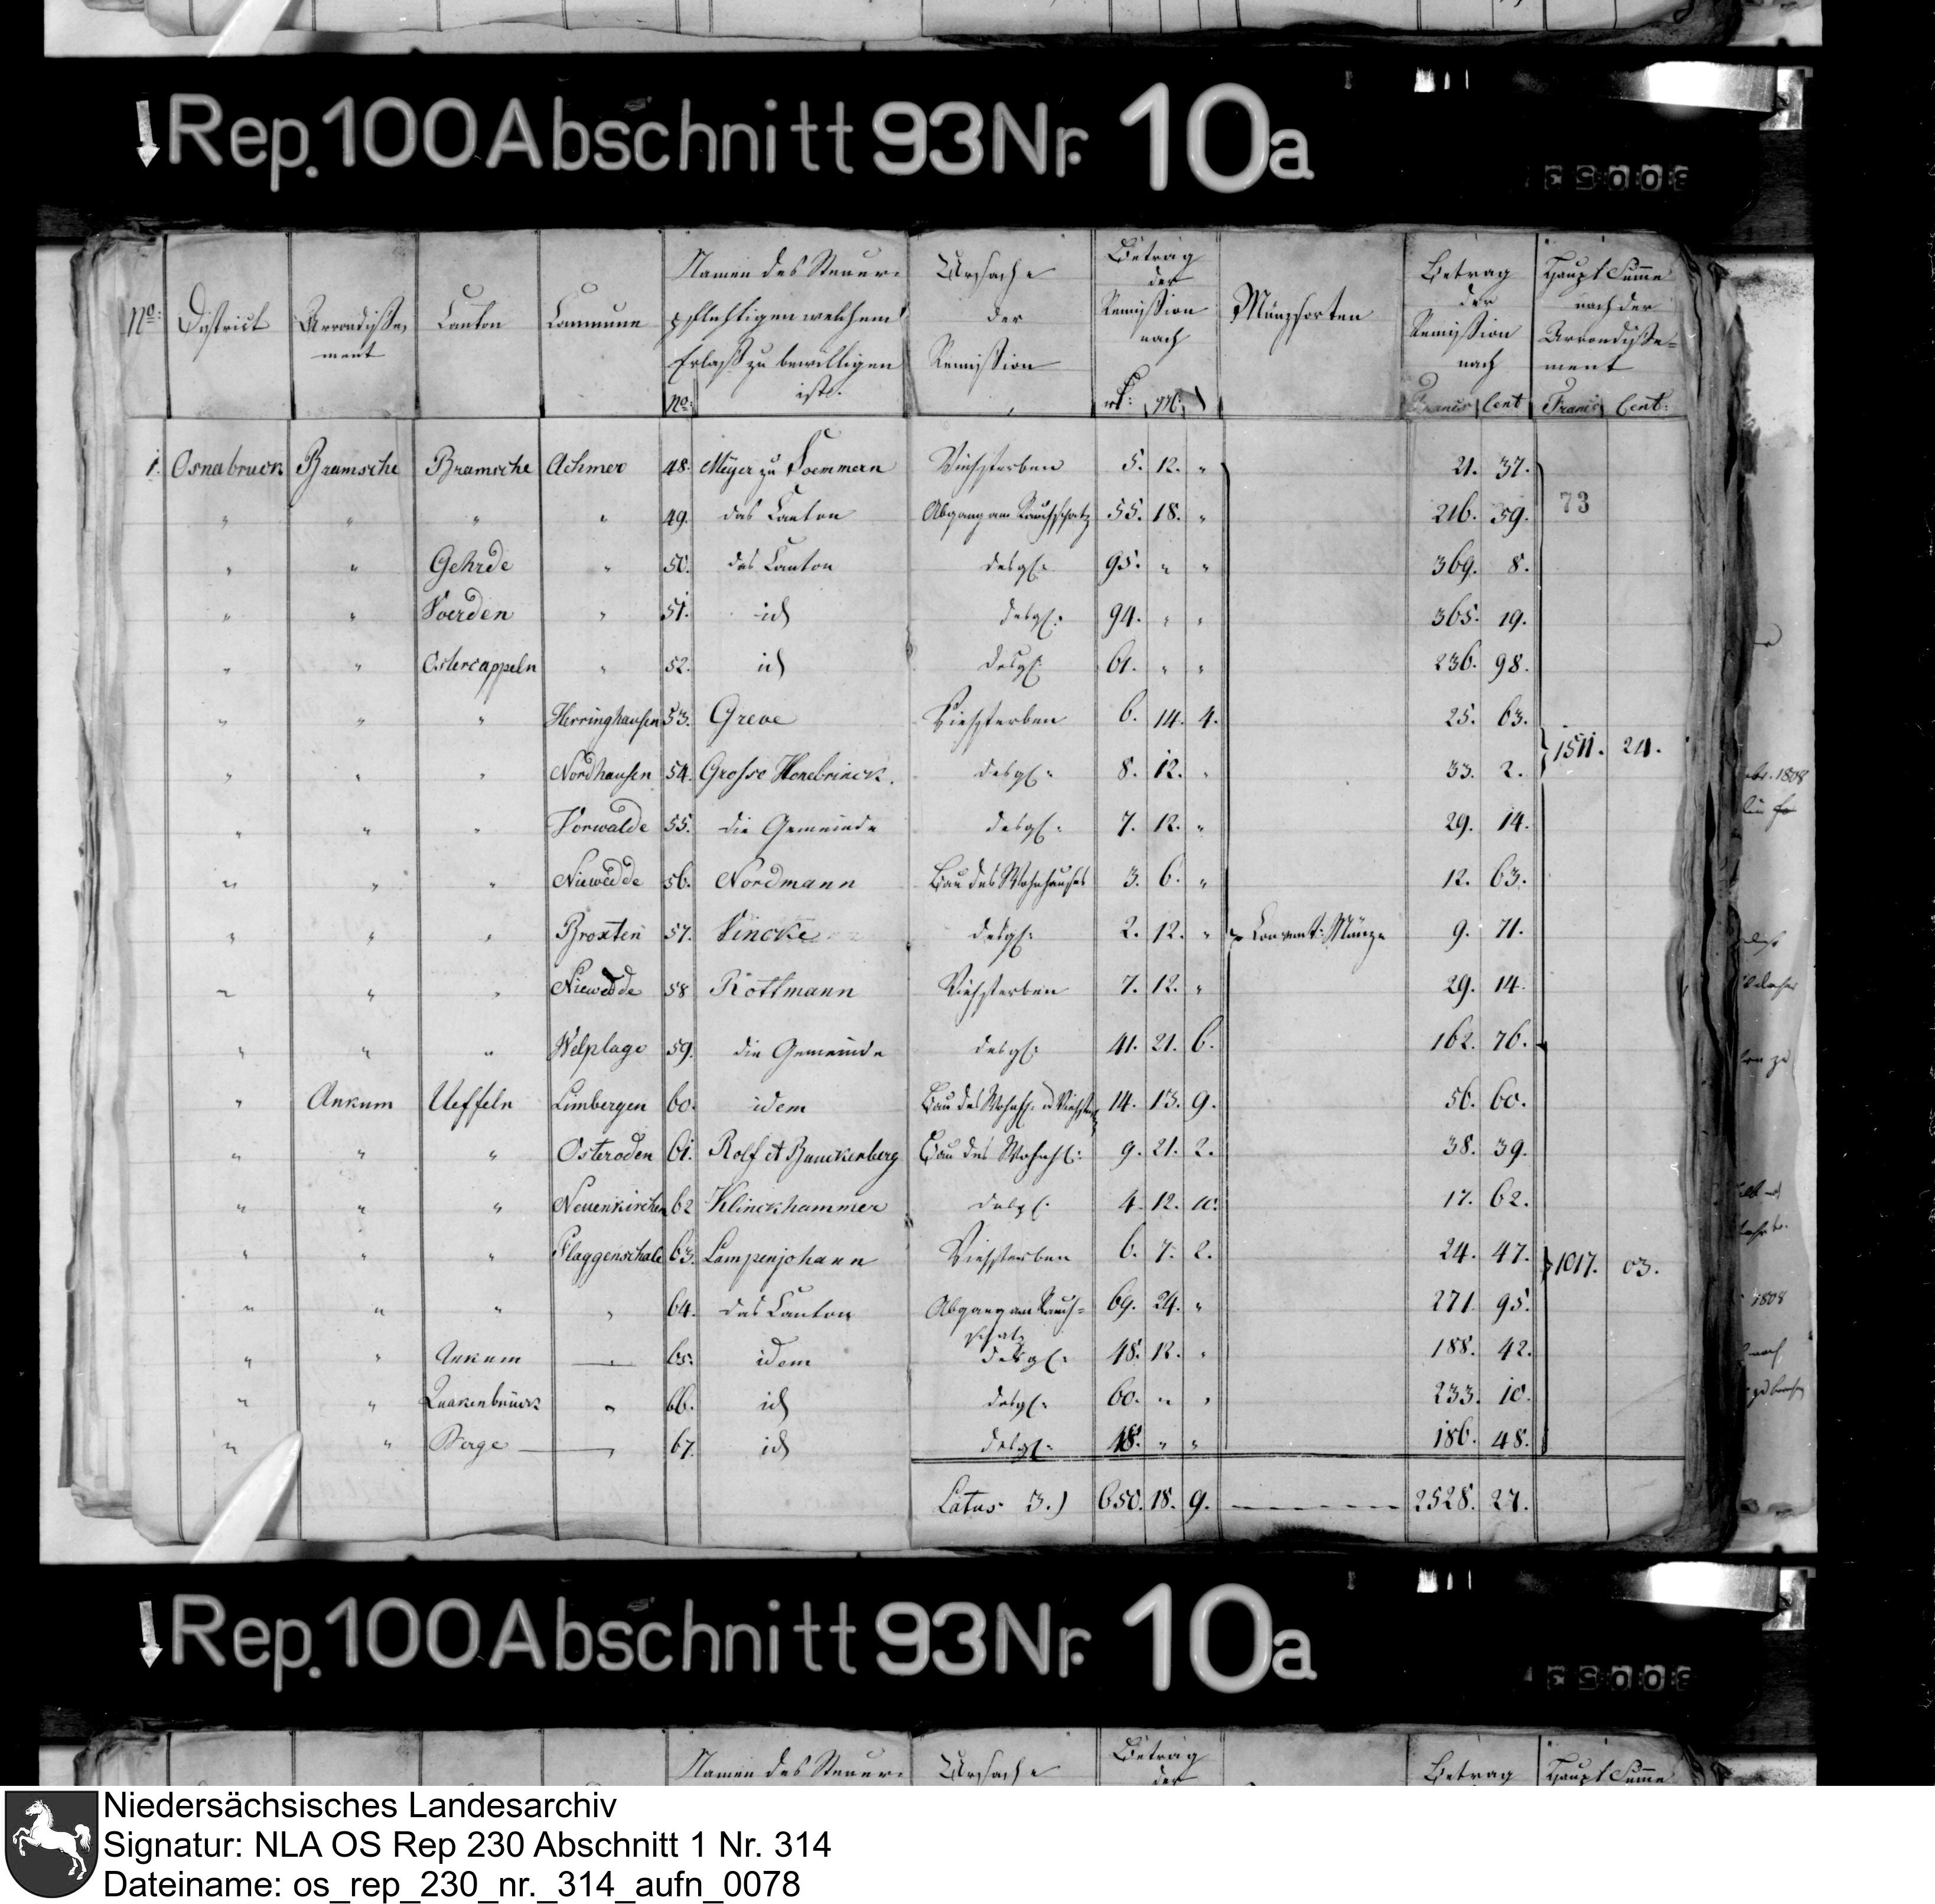 Rep. 100 Abschnitt 93 Nr. 10a
No: District Arrondisse- Canton Commune Namen des Steuer- Ursache Betrag Münzsorten Betrag Haupt Summe
ment pflichtigen welchem der der der nach der
Erlaß zu bewilligen Remission Remission Remission Arrondisse-
ist. nach nach ment
No: rt: Francs Cent Francs Cent:
1. Osnabruck Bramsche Bramsche Achmer 48. Meyer zu Viehsterben 5. 12. " 21. 37.
" " " " 49. das Canton Abgang am Rauchschatz 55. 18. " 216. 59. 73
" " Gehrde " 50. das Canton desgl: 95. " " 369. 8.
" " Voerden " 51. id desgl: 94. " " 365. 19.
" " Ostercappeln " 52. id desgl: 61. " " 236. 98.
" " " Herringhausen 53. Greve Viehsterben 6. 14. 4. 25. 63.
1511. 24.
" " " Nordhausen 54. Grosse Honebrinck. desgl: 8. 12. " 33. 2.
" " " Vorwalde 55. die Gemeinde desgl: 7. 12. " 29. 14.
" " " Niewedde 56. Nordmann Bau des Wohnhauses 3. 6. " 12. 63.
" " " Broxten 57. Vincke desgl: 2. 12. " Convent: Münze 9. 71.
" " " Niewedde 58 Rottmann Viehsterben 7. 12. " 29. 14.
" " " Welplage 59. die Gemeinde desgl: 41. 21. 6. 162. 76.
" Ankum Ueffeln Limbergen 60. idem Bau des Wohnh. 14. 13. 9. 56. 60.
" " " Osteroden 61. Rolf et Banckenberg Bau des Wohnh: 9. 21. 2. 38. 39.
" " " Neuenkirchen 62 Klinckhammer desgl. 4. 12. 10. 17. 62.
" " " Flaggenschale 63. Lampenjohann Viehsterben 6. 7. 2. 24. 47. 1017. 03.
" " " " 64. das Canton Abgang am Rauch= 69. 24. " 271. 95.
schatz
" " Ankum " 65. idem desgl: 48. 12. " 188. 42.
" " Quakenbrück " 66. id desgl: 60. " " 233. 10.
" " Berge " 67. id desgl: 48. " " 186. 48.
Latus 3.) 650. 18. 9. 2528. 27.
1808
1808
Rep. 100 Abschnitt 93 Nr. 10a
Namen des Steuer- Ursache Betrag Betrag Haupt Summe
der der
Niedersächsisches Landesarchiv
Signatur: NLA OS Rep 230 Abschnitt 1 Nr. 314
Dateiname: os_rep_230_nr._314_aufn_0078